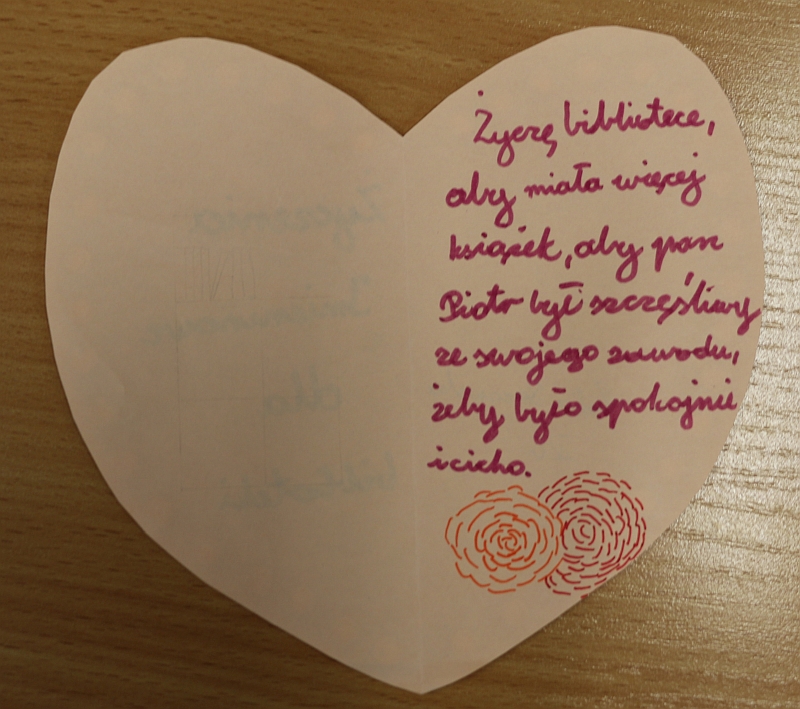 Życzę bibliotece,
aby miała więcej
książek, aby pan
Piotr był szczęśliwy
ze swojego zawodu,
żeby było spokojnie
i cicho.